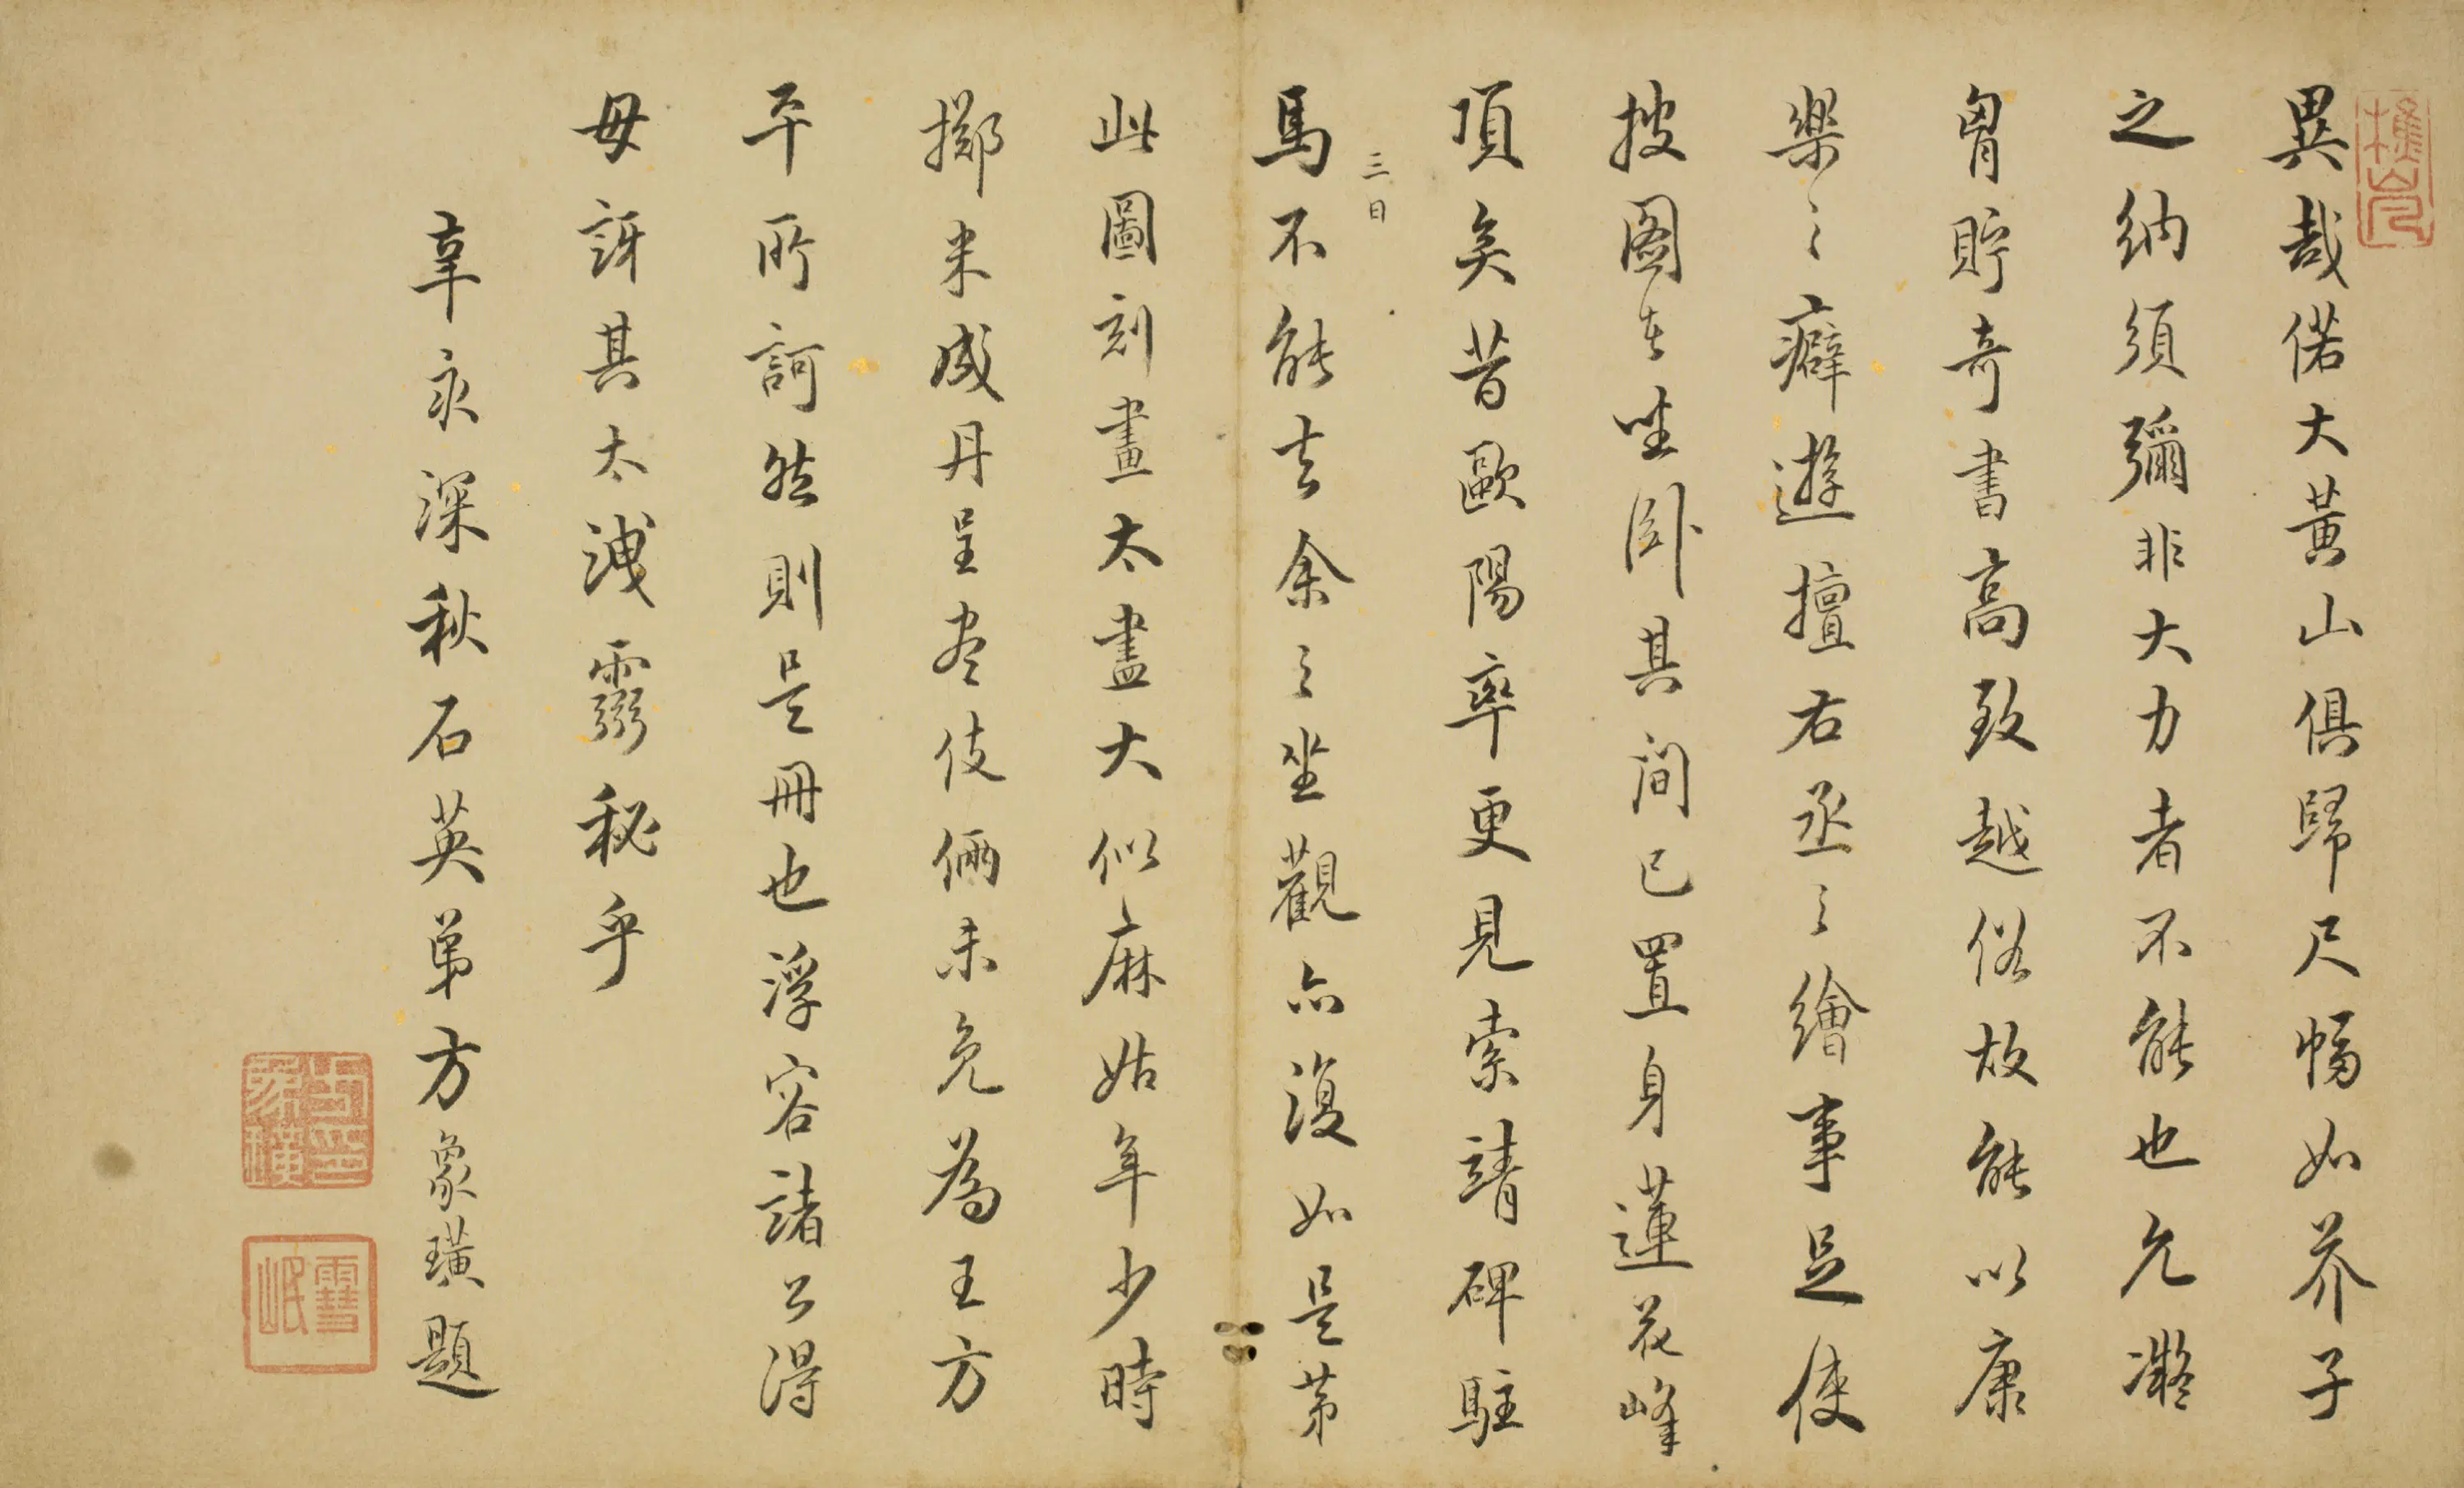 異哉偌大黃山俱歸尺幅如芥子
之納須彌非大力者不能也允凝
胷貯奇書高致越俗故能以康
樂之癖遊擅右丞之繪事足使
披圖者坐卧其间已置身蓮花峰
頂矣昔歐陽率更見索靖碑駐
馬三日不能去余之坐觀亦復如是第
此圖刻畫太盡大似麻姑年少時
擲米成丹呈盡伎倆未免為王方
平所訶然則是冊也浮容諸公得
毋訝其太洩靈秘乎
辜永深秋石英弟方象璜題
方象璜印
雪岷